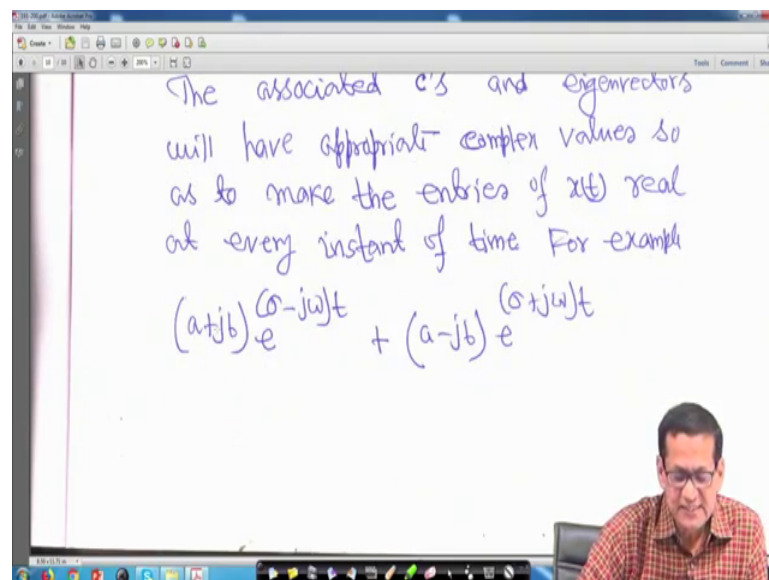 File Edit View Window Help
Create
200%
Tools Comment
The associated c's and eigenvectors
will have appropriate complex values so
as to make the entries of x(t) real
at every instant of time For example
(a+jb) e^(σ-jω)t + (a-jb) e^(σ+jω)t